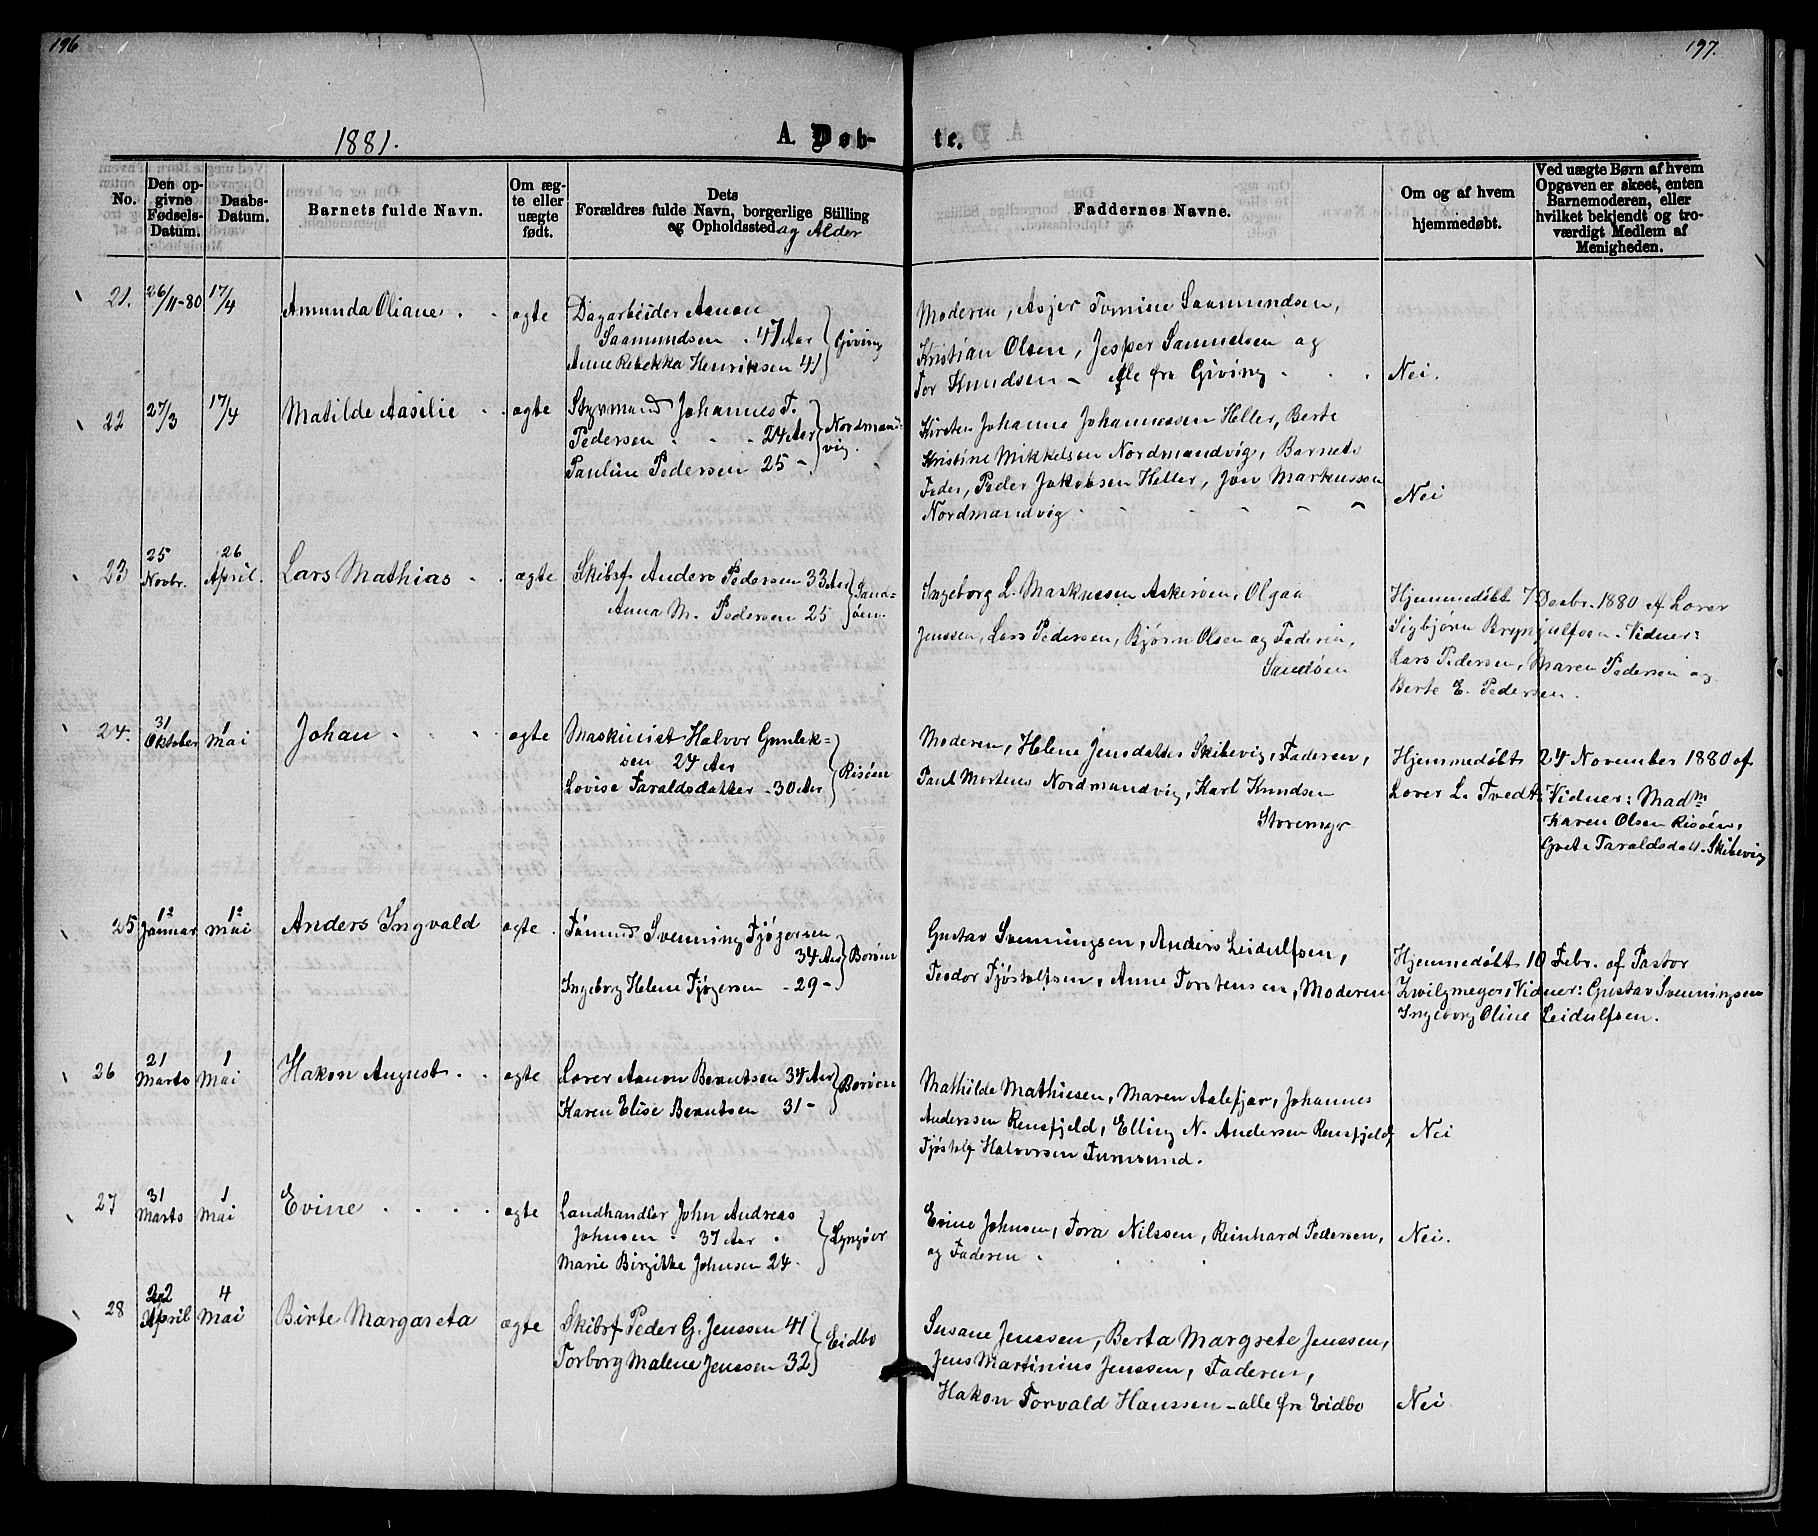 196
197.
1881.
A. Døb-
te.
No.
Den op-
givne
Fødsels-
Datum.
Daabs-
Datum.
Barnets fulde Navn.
Om æg-
te eller
uægte
født.
Dets
Forældres fulde Navn, borgerlige Stilling
og Opholdssted. og Alder
Faddernes Navne.
Om og af hvem
hjemmedøbt.
Ved uægte Børn af hvem
Opgaven er skeet, enten
Barnemoderen, eller
hvilket bekjendt og tro-
værdigt Medlem af
Menigheden.
21. 26/11-80 17/4 Amunda Oliane ægte
Dagarbeider Aanon
Saamundsen 47 Aar
Anne Rebekka Henriksen 41
Giving
Moderen, Asjer Tomine Saamundsen,
Kristian Olsen, Jesper Samuelsen og
Tor Knudsen - alle fra Giving
Nei.
22 27/3 17/4 Matilde Aasilie ægte
Styrmand Johannes T.
Pedersen 24 Aar
Pauline Pedersen 25 -
Nordmand-
vig.
Kirsten Johanne Johannessen Heller, Berte
Kristine Mikkelsen Nordmandvig, Barnets
Fader, Peder Jakobsen Heller, Jon Markussen
Nordmandvig
Nei
23 25 Novbr. 26 April. Lars Mathias ægte
Skibsf Anders Pedersen 33 Aar
Anna M. Pedersen 25
Sand-
øen.
Ingeborg L. Markussen Askerøen, Olgaa
Jenssen, Lars Pedersen, Bjørn Olsen og Faderen,
Sandøen
Hjemmedøbt 7 Decbr. 1880 af Lærer
Sigbjørn Brynjulfsen. Vidner:
Lars Pedersen, Maren Pedersen og
Berte E. Pedersen.
24. 31 Oktober 1 Mai Johan ægte
Maskinist Halvor Gunlek-
sen 24 Aar
Lovise Taraldsdatter - 30 Aar
Risøen
Moderen, Helene Jensdatter Skibevig, Faderen,
Paul Mortens Nordmandvig, Karl Knudsen
Storemyr
Hjemmedøbt 24 November 1880 af
Lærer L. Tvedt, Vidner: Madm
Karen Olsen Risøen,
Grete Taraldsdatt. Skibevig
25 12 Januar 12 Mai Anders Ingvald ægte.
Tømmd Svenning Fjøgersen
34 Aar
Ingeborg Helene Fjøgersen - 29 -
Borøen
Gustav Svenningsen, Anders Leidulfsen,
Teodor Tjøstolfsen, Anne Torstensen, Moderen
Hjemmedøbt 10 Febr. af Pastor
Zwilgmeyer, Vidner: Gustav Svenningsen
Ingeborg Oline Leidulfsen.
26 21 Marts 1 Mai Hakon August ægte
Lærer Aanon Berntsen 34 Aar
Karen Elise Berntsen 31 -
Borøen
Mathilde Mathiesen, Maren Aalefjær, Johannes
Anderssen Rensfjeld, Elling N. Andersen Rensfjeld,
Tjøstolf Halvorsen Furusund.
Nei
27 31 Marts 1 Mai Evine ægte
Landhandler John Andreas
Johnsen 37 Aar
Marie Birgitte Johnsen 24
Lyngøer
Evine Johnsen, Tora Nilssen, Reinhard Pedersen,
og Faderen
Nei.
28 22 April 4 Mai Birte Margareta ægte
Skibsf Peder G. Jenssen 41
Torborg Malene Jenssen 32
Eidbo
Susane Jenssen, Berta Margrete Jenssen,
Jens Martinius Jenssen, Faderen,
Hakon Torvald Hanssen - alle fra Eidbo
Nei